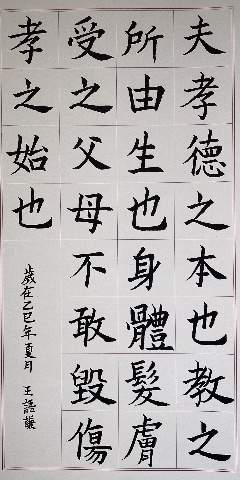 夫孝德之本也教之
所由生也身體髮膚
受之父母不敢毀傷
孝之始也
歲在乙巳年夏月 王語謙